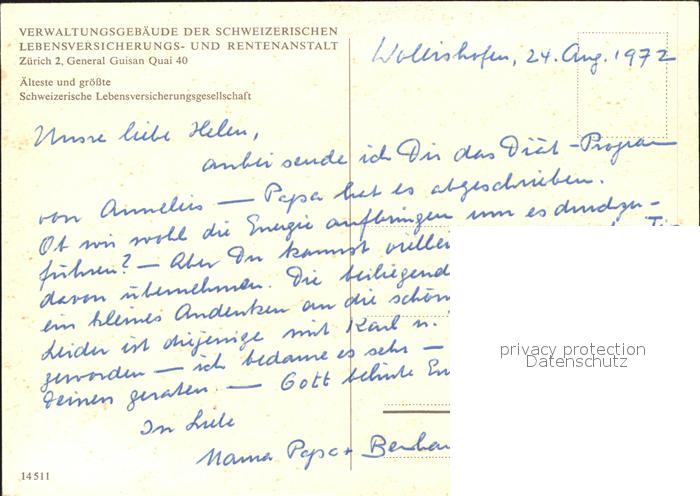 VERWALTUNGSGEBÄUDE DER SCHWEIZERISCHEN
LEBENSVERSICHERUNGS- UND RENTENANSTALT
Zürich 2, General Guisan Quai 40
Älteste und größte
Schweizerische Lebensversicherungsgesellschaft
Wollishofen, 24. Aug. 1972
Unsre liebe Helen,
anbei sende ich Dir das Diät-Program
von Annelies — Papa hat es abgeschrieben.
Ob wir wohl die Energie aufbringen um es durchzu-
führen? — Aber Du kannst
davon übernehmen. Die
ein kleines Andenken an die
Leider ist diejenige mit Karl u.
geworden — ich bedaure es sehr —
Deinen geraten. — Gott behüte
In Liebe
Mama Papa +
privacy protection
Datenschutz
14511